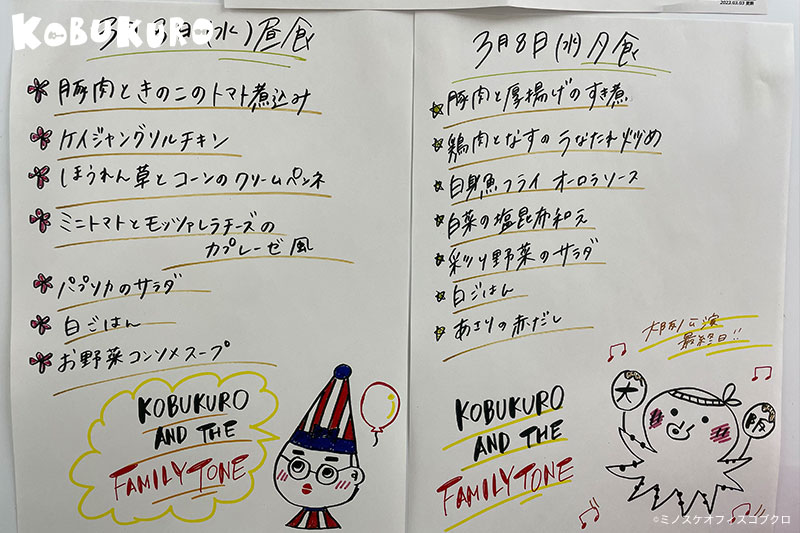 2022.03.03 更新
KOBUKURO
3月8日(水)昼食
豚肉ときのこのトマト煮込み
ケイジャングリルチキン
ほうれん草とコーンのクリームペンネ
ミニトマトとモッツァレラチーズの
カプレーゼ風
パプリカのサラダ
白ごはん
お野菜コンソメスープ
KOBUKURO
AND THE
FAMILY TONE
3月8日(水)夕食
豚肉と厚揚げのすき煮
鶏肉となすのうなたれ炒め
白身魚フライ オーロラソース
白菜の塩昆布和え
彩り野菜のサラダ
白ごはん
あさりの赤だし
大阪公演
最終日!!
KOBUKURO
AND THE
FAMILY TONE
大
阪
©ミノスケオフィスコブクロ